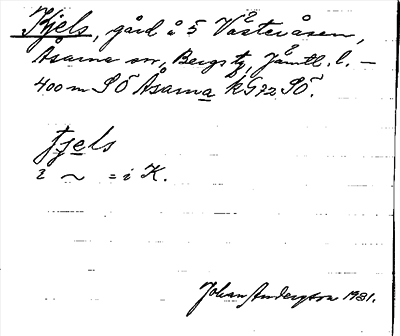 Kjels, gård å 5 Västeråsen,
Åsarna sn, Bergs tg, Jämtl. l. –
400 m SÖ Åsarna k G72 SÖ.
fjels
i ~ = i K.
Johan Anderzon 1931.